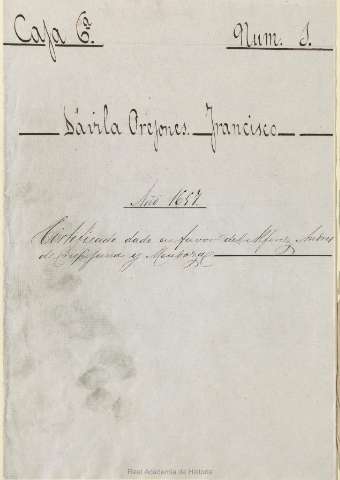 Caja 6ª. Num. 1.
Dávila Orejones. Francisco
Año 1657.
Certificado dado en favor del Alferez Andres
de y Mendoza
Real Academia de Historia